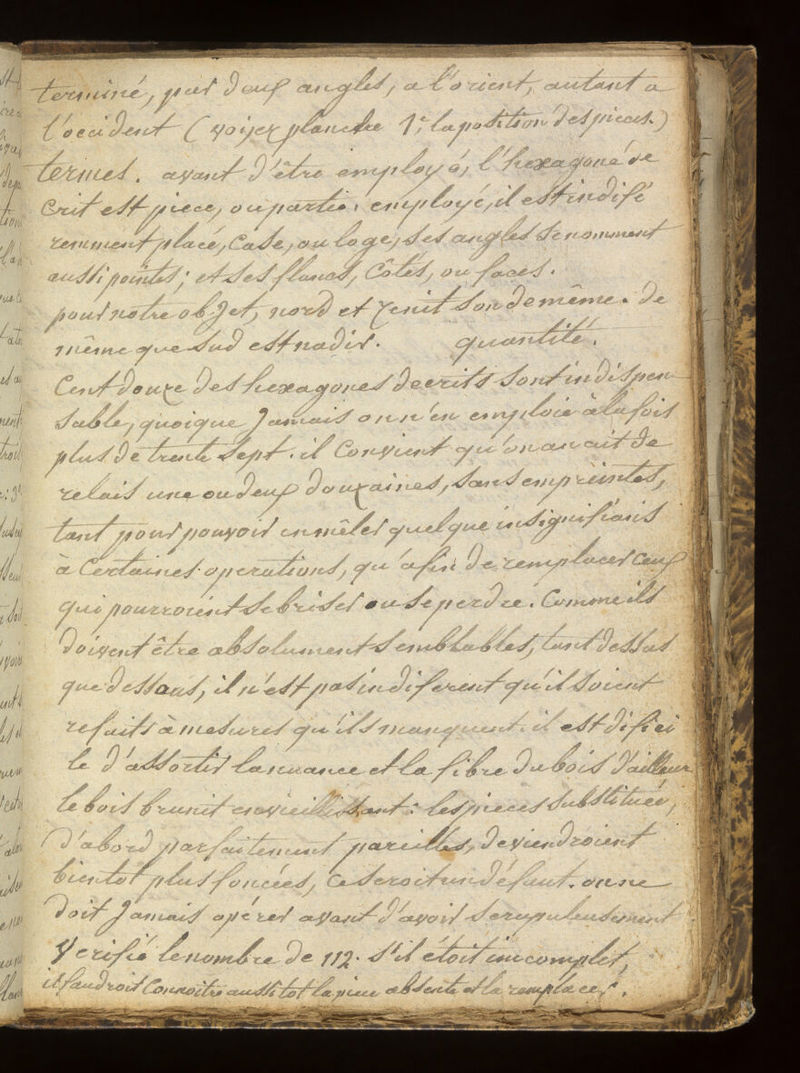 terminé, par deux angles, a l'orient, autant a
l'occident (voyez planche 1e la position des pieces.)
termes. avant d'être employé, l'hexagone dé
crit est piece, ou partie: employé, il est indifé
remment placé, case, ou loge, ses angles se nomment
aussi pointes; et ses flancs, côtés, ou faces.
pour notre objet, nord et zenit son de même. de
même que sud est nadir. quantité.
Cent douze des hexagones decrits sont indispen
sable, quoique jamais on n'en emploie à la fois
plus de trente sept. il convient qu'on an ait de
relais une ou deux douzaines, sans empreintes,
tant pour pouvoir en mêler quelque insignifians
à certaines operations, qu'afin de remplacer ceux
qui pourroient se briser ou se perdre. Comme ils
doivent être absolument semblables, tant dessus
que dessous, il n'est pas indiferent qu'il soient
refaits à mesures qu'ils manquent. il est dificï
le d'assortir la nuance et la fibre du bois d'ailleur
le bois brunit en vieillissant: les pieces substituées,
d'abord parfaitement pareilles, deviendroient
bientot plus foncées, ce seroit un défaut. on ne
doit jamais opérer avant d'avoir scrupuleusement
verifié le nombre de 112. s'il étoit incomplet,
il faudroit connoitre aussitot la piece absente et la remplacer.